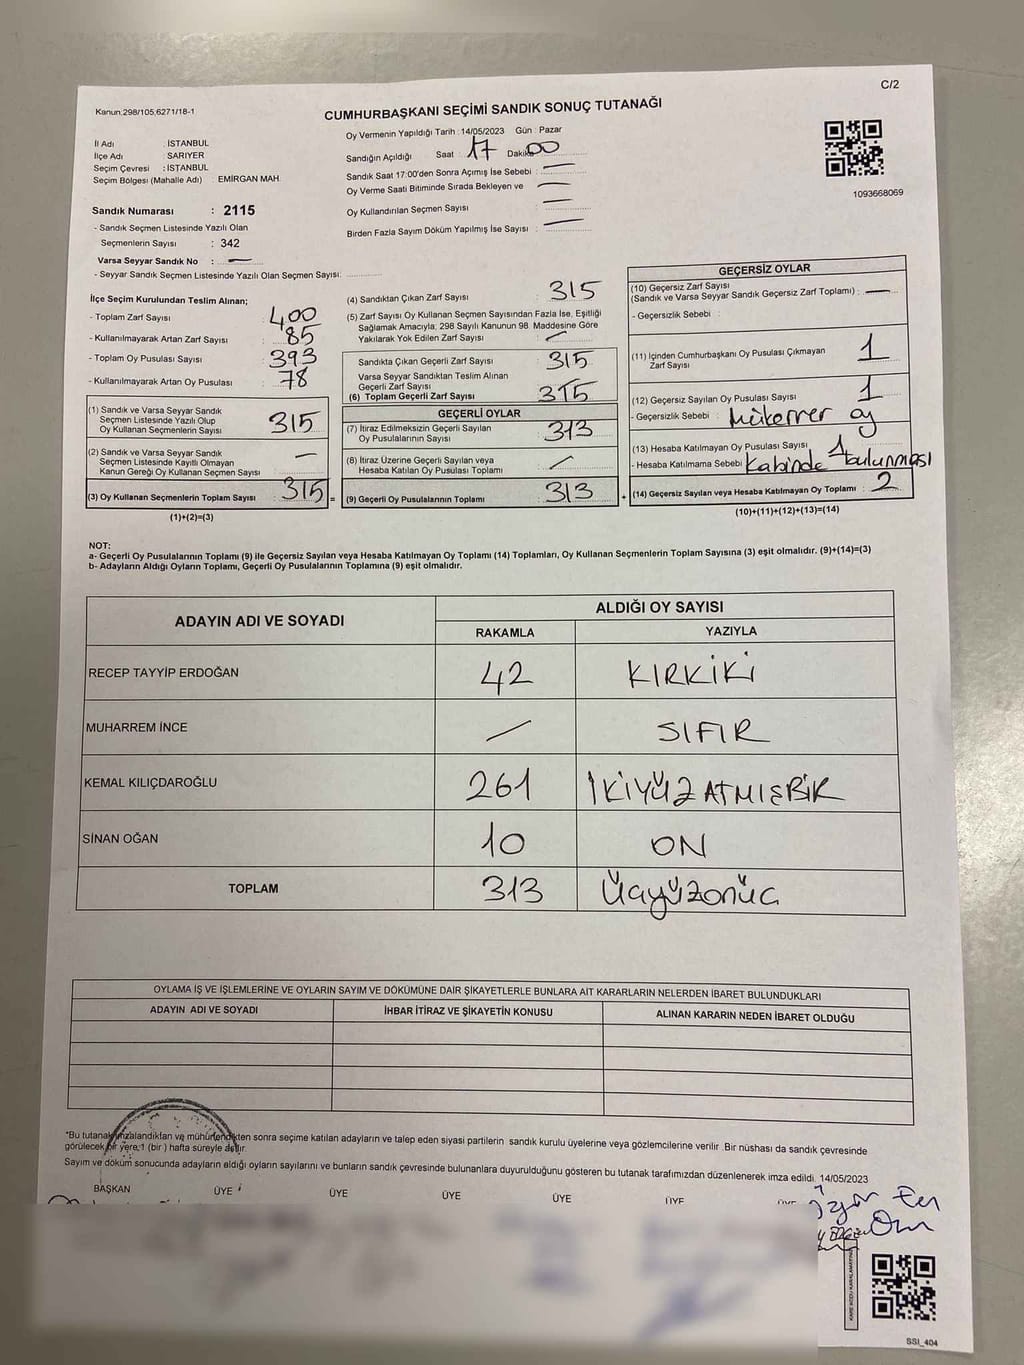 C/2
Kanun:298/105,6271/18-1
CUMHURBAŞKANI SEÇİMİ SANDIK SONUÇ TUTANAĞI
İl Adı : İSTANBUL
İlçe Adı : SARIYER
Seçim Çevresi : İSTANBUL
Seçim Bölgesi (Mahalle Adı) : EMİRGAN MAH.
Sandık Numarası : 2115
- Sandık Seçmen Listesinde Yazılı Olan
Seçmenlerin Sayısı : 342
Varsa Seyyar Sandık No : —
- Seyyar Sandık Seçmen Listesinde Yazılı Olan Seçmen Sayısı:
Oy Vermenin Yapıldığı Tarih : 14/05/2023 Gün : Pazar
Sandığın Açıldığı Saat : 17 Dakika 00
Sandık Saat 17:00'den Sonra Açımış İse Sebebi : —
Oy Verme Saati Bitiminde Sırada Bekleyen ve —
Oy Kullandırılan Seçmen Sayısı —
Birden Fazla Sayım Döküm Yapılmış İse Sayısı : —
1093668069
İlçe Seçim Kurulundan Teslim Alınan;
- Toplam Zarf Sayısı : 400
- Kullanılmayarak Artan Zarf Sayısı : 85
- Toplam Oy Pusulası Sayısı : 393
- Kullanılmayarak Artan Oy Pusulası : 78
(1) Sandık ve Varsa Seyyar Sandık
Seçmen Listesinde Yazılı Olup
Oy Kullanan Seçmenlerin Sayısı : 315
(2) Sandık ve Varsa Seyyar Sandık
Seçmen Listesinde Kayıtlı Olmayan
Kanun Gereği Oy Kullanan Seçmen Sayısı : —
(3) Oy Kullanan Seçmenlerin Toplam Sayısı : 315 =
(1)+(2)=(3)
(4) Sandıktan Çıkan Zarf Sayısı : 315
(5) Zarf Sayısı Oy Kullanan Seçmen Sayısından Fazla İse, Eşitliği
Sağlamak Amacıyla; 298 Sayılı Kanunun 98. Maddesine Göre
Yakılarak Yok Edilen Zarf Sayısı : —
Sandıkta Çıkan Geçerli Zarf Sayısı : 315
Varsa Seyyar Sandıktan Teslim Alınan
Geçerli Zarf Sayısı :
(6) Toplam Geçerli Zarf Sayısı : 315
GEÇERLİ OYLAR
(7) İtiraz Edilmeksizin Geçerli Sayılan
Oy Pusulalarının Sayısı : 313
(8) İtiraz Üzerine Geçerli Sayılan veya
Hesaba Katılan Oy Pusulası Toplamı : —
(9) Geçerli Oy Pusulalarının Toplamı : 313 +
GEÇERSİZ OYLAR
(10) Geçersiz Zarf Sayısı
(Sandık ve Varsa Seyyar Sandık Geçersiz Zarf Toplamı) : —
- Geçersizlik Sebebi :
(11) İçinden Cumhurbaşkanı Oy Pusulası Çıkmayan
Zarf Sayısı : 1
(12) Geçersiz Sayılan Oy Pusulası Sayısı : 1
- Geçersizlik Sebebi : Mükerrer oy
(13) Hesaba Katılmayan Oy Pusulası Sayısı : 1
- Hesaba Katılmama Sebebi : Kabinde bulunması
(14) Geçersiz Sayılan veya Hesaba Katılmayan Oy Toplamı : 2
(10)+(11)+(12)+(13)=(14)
NOT:
a- Geçerli Oy Pusulalarının Toplamı (9) ile Geçersiz Sayılan veya Hesaba Katılmayan Oy Toplamı (14) Toplamları, Oy Kullanan Seçmenlerin Toplam Sayısına (3) eşit olmalıdır. (9)+(14)=(3)
b- Adayların Aldığı Oyların Toplamı, Geçerli Oy Pusulalarının Toplamına (9) eşit olmalıdır.
ADAYIN ADI VE SOYADI
ALDIĞI OY SAYISI
RAKAMLA YAZIYLA
RECEP TAYYİP ERDOĞAN 42 KIRKİKİ
MUHARREM İNCE — SIFIR
KEMAL KILIÇDAROĞLU 261 İKİYÜZATMIŞBİR
SİNAN OĞAN 10 ON
TOPLAM 313 Üçyüzonüç
OYLAMA İŞ VE İŞLEMLERİNE VE OYLARIN SAYIM VE DÖKÜMÜNE DAİR ŞİKAYETLERLE BUNLARA AİT KARARLARIN NELERDEN İBARET BULUNDUKLARI
ADAYIN ADI VE SOYADI İHBAR İTİRAZ VE ŞİKAYETİN KONUSU ALINAN KARARIN NEDEN İBARET OLDUĞU
*Bu tutanak imzalandıktan ve mühürlendikten sonra seçime katılan adayların ve talep eden siyasi partilerin sandık kurulu üyelerine veya gözlemcilerine verilir. Bir nüshası da sandık çevresinde
görülecek bir yere 1 (bir) hafta süreyle asılır.
Sayım ve döküm sonucunda adayların aldığı oyların sayılarını ve bunların sandık çevresinde bulunanlara duyurulduğunu gösteren bu tutanak tarafımızdan düzenlenerek imza edildi. 14/05/2023
BAŞKAN ÜYE ÜYE ÜYE ÜYE ÜYE
SSI_404